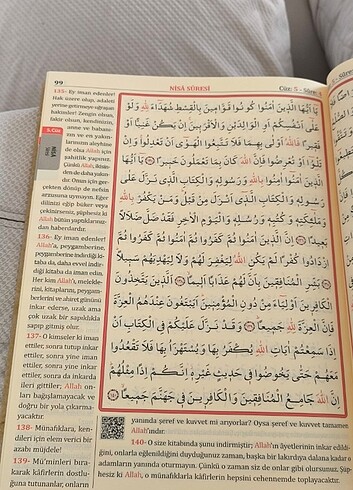 99
NİSÂ SÛRESİ
Cüz: 5 - Sûre: 4
135- Ey iman edenler!
Hak üzere olup, adaleti
yerine getirmeye uğraşan
hakimler! Zengin olsun,
fakir olsun, kendinizin,
anne ve babanı-
zın ve en yakın-
larınızın aleyhine
de olsa Allah için
şahitlik yapınız.
Çünkü Allah, ikisin-
den de daha yakın-
dır. Onun için ger-
çekten dönüp de nefsin
arzusuna uymayın. Eğer
dilinizi eğip büker veya
çekinirseniz, şüphesiz ki
Allah bütün yaptıklarınız-
dan haberdardır.
136- Ey iman edenler!
Allah'a, peygamberine,
peygamberine indirdiği ki-
taba da, daha evvel indir-
diği kitaba da iman edin.
Her kim Allah'ı, melekle-
rini, kitaplarını, peygam-
berlerini ve ahiret gününü
inkar ederse, uzak ama
çok uzak bir sapıklıkla
sapıp gitmiş olur.
137- O kimseler ki iman
ettiler, sonra tutup inkar
ettiler, sonra yine iman
ettiler, sonra yine inkar
ettiler, sonra da inkarda
ileri gittiler; Allah on-
ları bağışlamayacak ve
doğru bir yola çıkarma-
yacaktır.
138- Münafıklara, ken-
dileri için elem verici bir
azabı müjdele!
139- Mü'minleri bıra-
karak kâfirlerin dostlu-
ğuna tutunanlar, onların
5. Cüz
NİSÂ
يَآ اَيُّهَا الَّذِينَ اٰمَنُوا كُونُوا قَوَّامِينَ بِالْقِسْطِ شُهَدَٓاءَ لِلّٰهِ وَلَوْ
عَلٰٓى اَنْفُسِكُمْ اَوِ الْوَالِدَيْنِ وَالْاَقْرَبِينَ اِنْ يَكُنْ غَنِيًّا اَوْ
فَقِيرًا فَاللّٰهُ اَوْلٰى بِهِمَا فَلَا تَتَّبِعُوا الْهَوٰٓى اَنْ تَعْدِلُوا وَاِنْ
تَلْوُٓا اَوْ تُعْرِضُوا فَاِنَّ اللّٰهَ كَانَ بِمَا تَعْمَلُونَ خَبِيرًا ﴿١٣٥﴾ يَآ اَيُّهَا
الَّذِينَ اٰمَنُٓوا اٰمِنُوا بِاللّٰهِ وَرَسُولِهِ وَالْكِتَابِ الَّذِي نَزَّلَ عَلٰى
رَسُولِهِ وَالْكِتَابِ الَّذِٓي اَنْزَلَ مِنْ قَبْلُ وَمَنْ يَكْفُرْ بِاللّٰهِ
وَمَلٰٓئِكَتِهِ وَكُتُبِهِ وَرُسُلِهِ وَالْيَوْمِ الْاٰخِرِ فَقَدْ ضَلَّ ضَلَالًا
بَعِيدًا ﴿١٣٦﴾ اِنَّ الَّذِينَ اٰمَنُوا ثُمَّ كَفَرُوا ثُمَّ اٰمَنُوا ثُمَّ كَفَرُوا ثُمَّ
ازْدَادُوا كُفْرًا لَمْ يَكُنِ اللّٰهُ لِيَغْفِرَ لَهُمْ وَلَا لِيَهْدِيَهُمْ سَبِيلًا
﴿١٣٧﴾ بَشِّرِ الْمُنَافِقِينَ بِاَنَّ لَهُمْ عَذَابًا اَلِيمًا ﴿١٣٨﴾ اَلَّذِينَ يَتَّخِذُونَ
الْكَافِرِينَ اَوْلِيَٓاءَ مِنْ دُونِ الْمُؤْمِنِينَ اَيَبْتَغُونَ عِنْدَهُمُ الْعِزَّةَ
فَاِنَّ الْعِزَّةَ لِلّٰهِ جَمِيعًا ﴿١٣٩﴾ وَقَدْ نَزَّلَ عَلَيْكُمْ فِي الْكِتَابِ اَنْ
اِذَا سَمِعْتُمْ اٰيَاتِ اللّٰهِ يُكْفَرُ بِهَا وَيُسْتَهْزَاُ بِهَا فَلَا تَقْعُدُوا
مَعَهُمْ حَتّٰى يَخُوضُوا فِي حَدِيثٍ غَيْرِهِ اِنَّكُمْ اِذًا مِثْلُهُمْ
اِنَّ اللّٰهَ جَامِعُ الْمُنَافِقِينَ وَالْكَافِرِينَ فِي جَهَنَّمَ جَمِيعًا ﴿١٤٠﴾
yanında şeref ve kuvvet mi arıyorlar? Oysa şeref ve kuvvet tamamen
Allah'ındır.
140- O size kitabında şunu indirmiştir; Allah'ın âyetlerinin inkar edildi-
ğini, onlarla eğlenildiğini duyduğunuz zaman, başka bir lakırdıya dalana kadar o
adamların yanında oturmayın. Çünkü o zaman siz de onlar gibi olursunuz. Şüp-
hesiz ki Allah, o münafıklarla kâfirlerin hepsini cehennemde toplayacaktır.